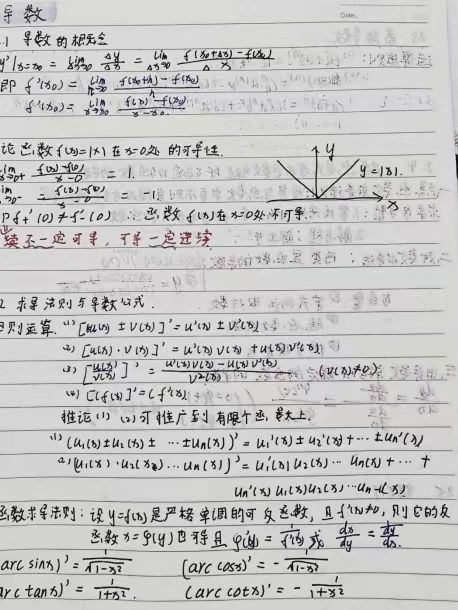 导数
Date.
.1 导数的概念
y'|x=x₀ = lim Δx→0 Δy/Δx = lim Δx→0 (f(x₀+Δx)-f(x₀))/Δx
即 f'(x₀) = lim h→0 (f(x₀+h)-f(x₀))/h
f'(x₀) = lim x→x₀ (f(x)-f(x₀))/(x-x₀)
论函数f(x)=|x| 在x=0处的可导性.
lim x→0+ (f(x)-f(0))/(x-0) = 1.
lim x→0- (f(x)-f(0))/(x-0) = -1
y
y=|x|.
x
f+'(0)≠f-'(0) 函数f(x)在x=0处不可导.
续不一定可导,可导一定连续
2 求导法则与导数公式.
则运算. (1) [u(x) ± v(x)]' = u'(x) ± v'(x)
(2) [u(x) · v(x)]' = u'(x) v(x) + u(x) v'(x)
(3) [u(x)/v(x)]' = (u'(x)v(x) - u(x)v'(x))/v²(x) (v(x)≠0)
(4) [C(f(x)]' = C f'(x)
推论 (1) (2) 可推广到有限个函数上
(1) (u₁(x) ± u₂(x) ± … ± uₙ(x))' = u₁'(x) ± u₂'(x) + … ± uₙ'(x)
(2) (u₁(x) · u₂(x) … uₙ(x))' = u₁'(x) u₂(x) … uₙ(x) + … +
uₙ'(x) u₁(x) u₂(x) … uₙ₋₁(x)
函数求导法则: 设y=f(x)是严格单调的可反函数,且f'(x)≠0,则它的反
函数x=φ(y)也可导且 φ'(y) = 1/f'(x) 或 dx/dy = 1/(dy/dx).
(arc sinx)' = 1/√(1-x²) (arc cosx)' = - 1/√(1-x²)
(arc tanx)' = 1/(1+x²) (arc cotx)' = - 1/(1+x²)